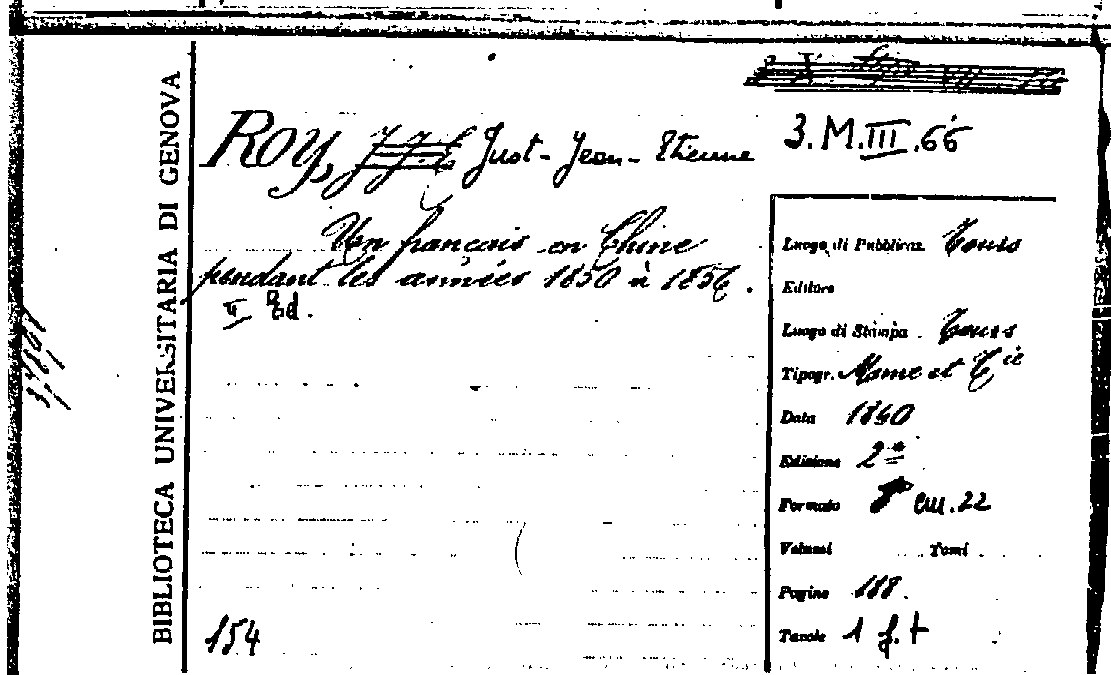 BIBLIOTECA UNIVERSITARIA DI GENOVA
3.M.III.66
Roy, J.J.E. Just-Jean-Etienne
Un français en Chine
pendant les années 1850 à 1856.
II Ed.
154
Luogo di Pubblicaz. Tours
Editore
Luogo di Stampa Tours
Tipogr. Mame et Cie
Data 1860
Edizione 2ª
Formato 8° cm.22
Volumi Tomi
Pagine 188.
Tavole 1 f.t